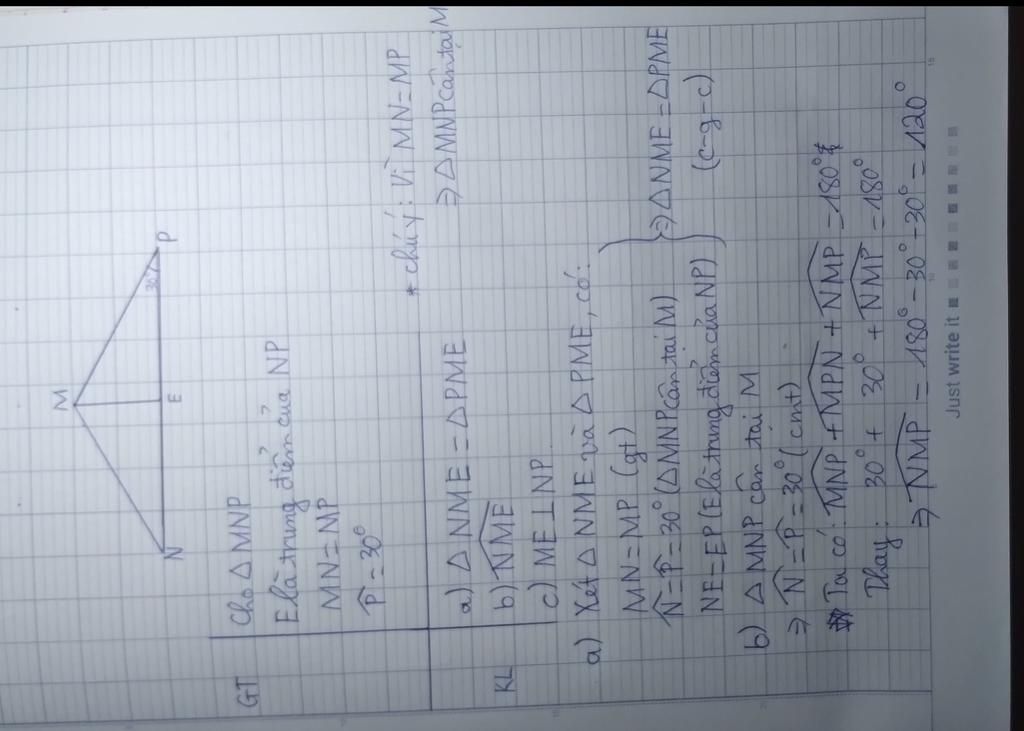 M
30°
N E P
GT
Cho △ MNP
E là trung điểm của NP
MN = MP
P̂ = 30°
* chú ý: Vì MN = MP
⇒ △ MNP cân tại M
KL
a) △ NME = △ PME
b) \widehat{NME}
c) ME ⊥ NP
a) Xét △ NME và △ PME, có:
MN = MP (gt)
N̂ = P̂ = 30° (△ MNP cân tại M)
NE = EP (E là trung điểm của NP)
⇒ △ NME = △ PME
(c-g-c)
b) △ MNP cân tại M
⇒ N̂ = P̂ = 30° (cmt)
Ta có: \widehat{MNP} + \widehat{MPN} + \widehat{NMP} = 180°
Thay: 30° + 30° + \widehat{NMP} = 180°
⇒ \widehat{NMP} = 180° - 30° - 30° = 120°
Just write it